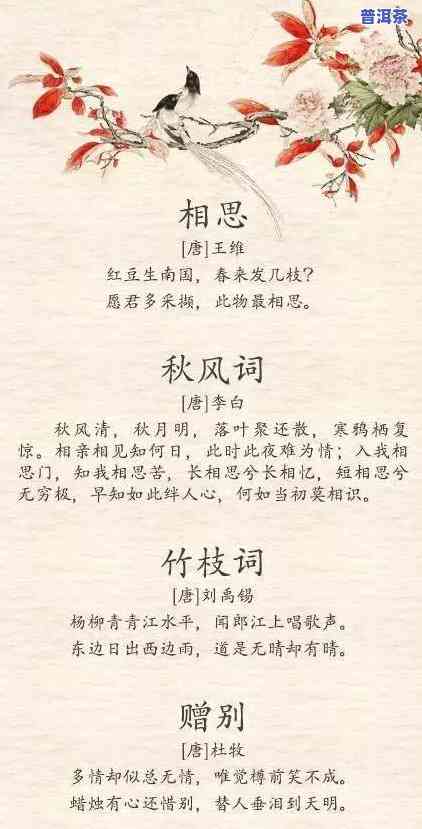 普洱茶
相思
[唐]王维
红豆生南国，春来发几枝？
愿君多采撷，此物最相思。
秋风词
[唐]李白
秋风清，秋月明，落叶聚还散，寒鸦栖复
惊。相亲相见知何日，此时此夜难为情；入我相
思门，知我相思苦，长相思兮长相忆，短相思兮
无穷极，早知如此绊人心，何如当初莫相识。
竹枝词
[唐]刘禹锡
杨柳青青江水平，闻郎江上唱歌声。
东边日出西边雨，道是无晴却有晴。
赠别
[唐]杜牧
多情却似总无情，唯觉樽前笑不成。
蜡烛有心还惜别，替人垂泪到天明。